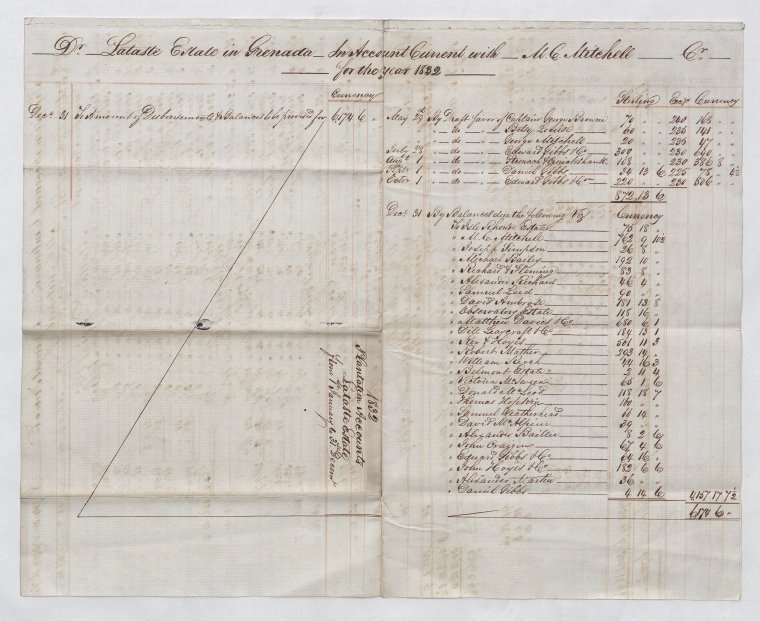 Dr Lataste Estate in Grenada In Account Current with M C Mitchell Cr
for the year 1832
Currency
Decr 31 To Amount of Disbursements & Balances to be provided for 6,174 6 "
Sterling Exc Currency
May 29 By Draft favor of Captain 70 240 168 "
" do " Betsy 60 235 141 "
" do " George Mitchell 20 235 47 "
July 28 " do " Edward Gibbs & Co 300 230 690 "
Augt 1 " do " 168 230 386 8 "
1 " do " Daniel Gibbs 34 13 6 225 78 " 4½
Octor 1 " do " Edward Gibbs & Co 220 230 506 "
872 13 6
Decr 31 By Balances due the following Viz Currency
To Estate 75 18 "
" M C Mitchell 762 9 10½
" Joseph Simpson 26 8 "
" Michael Bailey 192 10 "
" Richard Fleming 83 8 "
" Alexander 46 4 "
" Samuel 90 " "
" David Ambrose 181 13 8
" Observatory Estate 118 16 "
" Matthew Davies & Co 680 6 1
" Dell Leaycraft & Co 184 13 1
" Ker & Hoyes 561 11 3
" Robert Mather 203 14 "
" William 44 16 3
" Belmont Estate 2 11 4
" Victoria 65 1 6
" Donald McLeod 118 18 7
" Thomas 160 " "
" Samuel Weatherhead 66 14 "
" David McAlpine 39 " "
" Alexander Baillie 8 2 6
" John 67 4 6
" Edward Gibbs & Co 64 16 "
" John Hoyes & Co 182 6 6
" Alexander Martin 36 " "
" Daniel Gibbs 4 14 6 4,157 17 7½
6,174 6 "
1832
Plantation Accounts
Lataste Estate
from 1st January to 31st Decemr